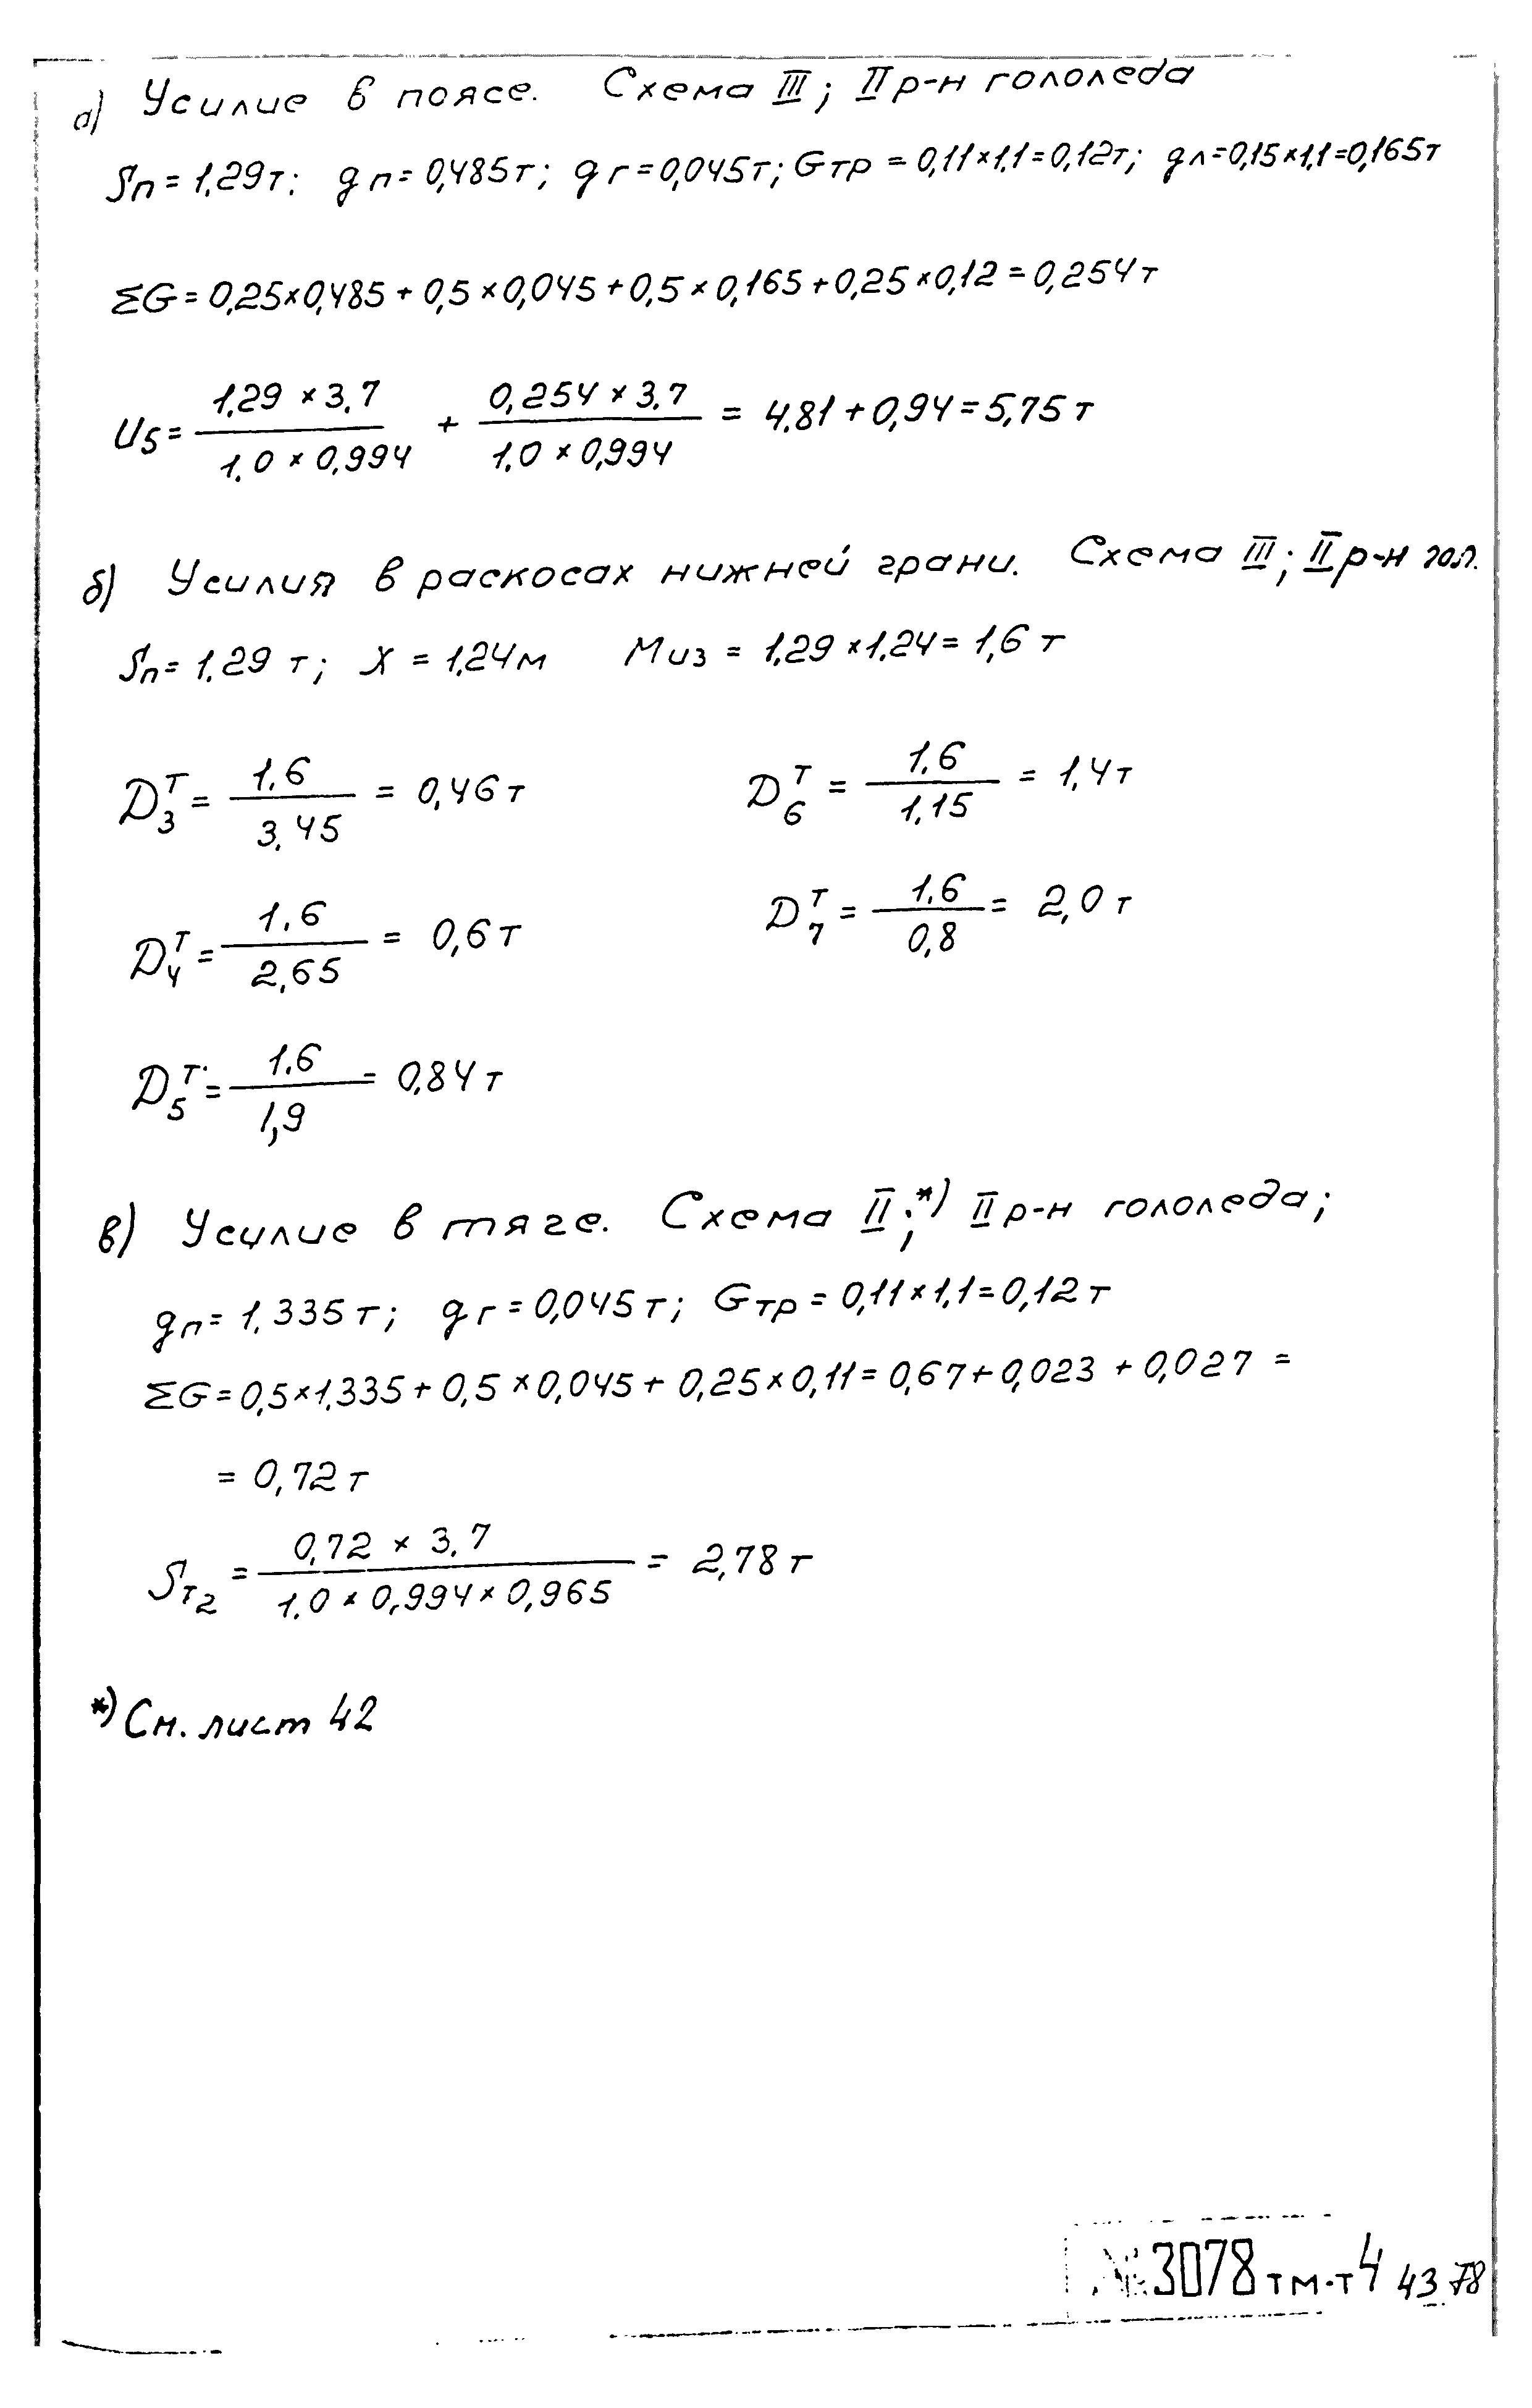 а) Усилие в поясе. Схема III; II р-н гололеда
Sп = 1.29т; gп = 0,485т; gг = 0,045т; Gтр = 0,11×1,1 = 0,12т; gл = 0,15×1,1 = 0,165т
ΣG = 0,25×0,485 + 0,5×0,045 + 0,5×0,165 + 0,25×0,12 = 0,254т
U5 = 1.29 × 3.7 / 1.0 × 0,994 + 0,254 × 3.7 / 1.0 × 0,994 = 4.81 + 0,94 = 5,75 т
б) Усилия в раскосах нижней грани. Схема III; II р-н гол.
Sп = 1.29 т; X = 1.24м Mиз = 1.29 × 1.24 = 1,6 т
D3^т = 1.6 / 3.45 = 0,46 т D6^т = 1.6 / 1.15 = 1,4т
D4^т = 1.6 / 2,65 = 0,6 т D7^т = 1.6 / 0,8 = 2,0 т
D5^т = 1.6 / 1,9 = 0,84 т
в) Усилие в тяге. Схема II;*) II р-н гололеда;
gп = 1.335т; gг = 0,045т; Gтр = 0,11×1,1 = 0,12т
ΣG = 0,5×1.335 + 0,5×0,045 + 0,25×0,11 = 0,67 + 0,023 + 0,027 =
= 0,72т
Sт2 = 0,72 × 3.7 / 1.0 × 0,994 × 0,965 = 2,78т
*) См. лист 42
№3078тм-т4 43 78